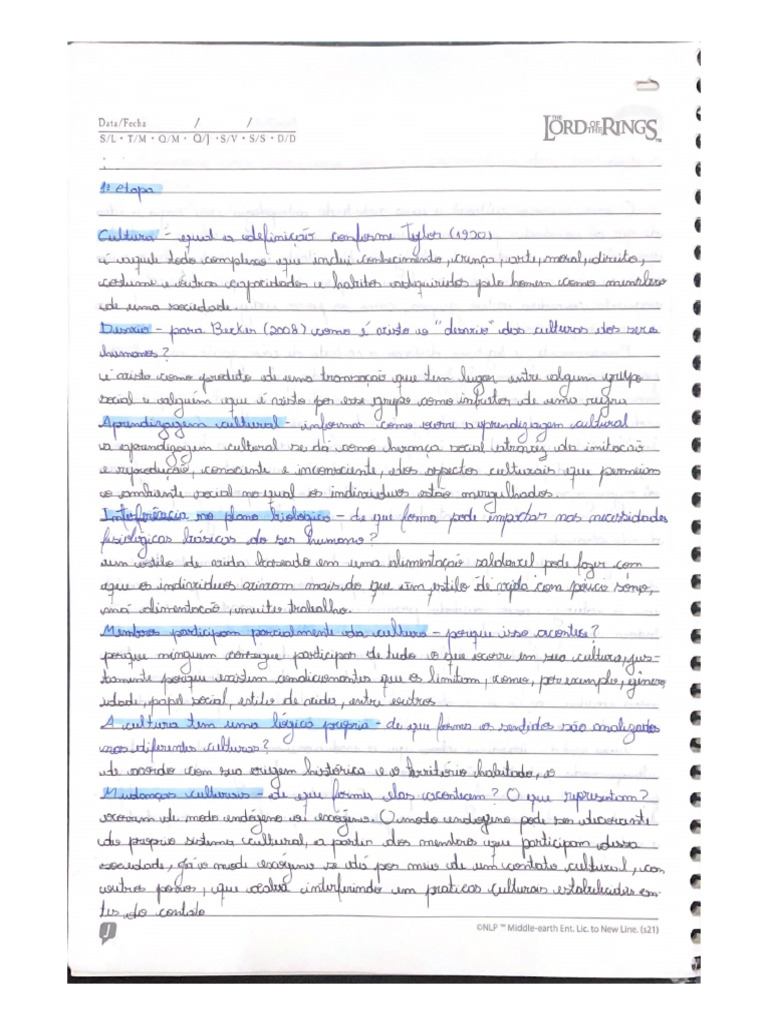 1
Data/Fecha / /
S/L • T/M • Q/M • Q/J • S/V • S/S • D/D
THE LORD OF THE RINGS
1ª etapa
Cultura - qual a definição conforme Tylor (1920)
é aquele todo complexo que inclui conhecimento, crença, arte, moral, direito,
costume e outras capacidades e hábitos adquiridos pelo homem como membro
de uma sociedade.
Desvio - para Becker (2008) como é visto o "desvio" das culturas dos seres
humanos?
é visto como produto de uma transação que tem lugar entre algum grupo
social e alguém que é visto por esse grupo como infrator de uma regra
Aprendizagem cultural - informar como ocorre a aprendizagem cultural
a aprendizagem cultural se dá como herança social através da imitação
e reprodução, consciente e inconsciente, dos aspectos culturais que permeiam
o ambiente social no qual os indivíduos estão mergulhados.
Interferência no plano biológico - de que forma pode impactar nas necessidades
fisiológicas básicas do ser humano?
um estilo de vida baseado em uma alimentação saldavel pode fazer com
que os indivíduos vivam mais do que um estilo de vida com pouco sono,
má alimentação, muito trabalho.
Membros participam parcialmente da cultura - porque isso acontece?
porque ninguem consegue participar de tudo o que ocorre em sua cultura, jus-
tamente porque existem condicionantes que os limitam, como, por exemplo, gênero,
idade, papel social, estilo de vida, entre outros.
A cultura tem uma lógica propria - de que forma os sentidos são analizados
nas diferentes culturas?
de acordo com sua origem histórica e o território habitado, o
Mudanças culturais - de que forma elas acontecem? O que representam?
ocorrem de modo endógeno ou exógeno. O modo endogeno pode ser decorrente
do proprio sistema cultural, a partir dos membros que participam dessa
sociedade, já o modo exógeno se dá por meio de um contato cultural, com
outros povos, que acaba interferindo em praticas culturais estabelecidas an-
tes do contato
J
©NLP ™ Middle-earth Ent. Lic. to New Line. (s21)